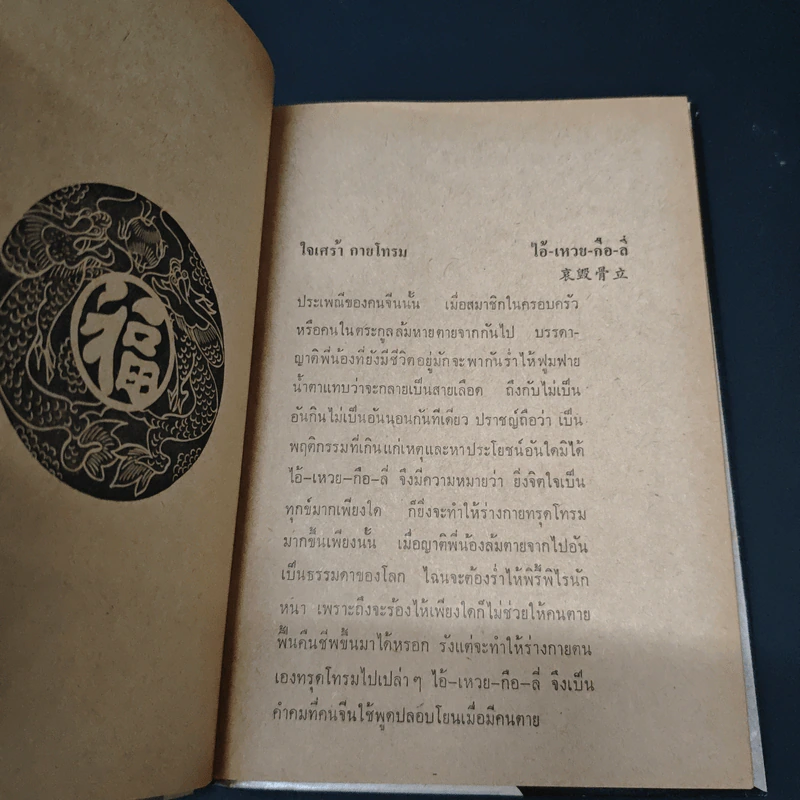 福
ใจเศร้า กายโทรม ไอ้-เหวย-กือ-ลี่
哀毀骨立
ประเพณีของคนจีนนั้น เมื่อสมาชิกในครอบครัว
หรือคนในตระกูลล้มหายตายจากกันไป บรรดา-
ญาติพี่น้องที่ยังมีชีวิตอยู่มักจะพากันร่ำไห้ฟูมฟาย
น้ำตาแทบว่าจะกลายเป็นสายเลือด ถึงกับไม่เป็น
อันกินไม่เป็นอันนอนกันทีเดียว ปราชญ์ถือว่า เป็น
พฤติกรรมที่เกินแก่เหตุและหาประโยชน์อันใดมิได้
ไอ้–เหวย–กือ–ลี่ จึงมีความหมายว่า ยิ่งจิตใจเป็น
ทุกข์มากเพียงใด ก็ยิ่งจะทำให้ร่างกายทรุดโทรม
มากขึ้นเพียงนั้น เมื่อญาติพี่น้องล้มตายจากไปอัน
เป็นธรรมดาของโลก ไฉนจะต้องร่ำไห้พิรี้พิไรนัก
หนา เพราะถึงจะร้องไห้เพียงใดก็ไม่ช่วยให้คนตาย
ฟื้นคืนชีพขึ้นมาได้หรอก รังแต่จะทำให้ร่างกายตน
เองทรุดโทรมไปเปล่าๆ ไอ้–เหวย–กือ–ลี่ จึงเป็น
คำคมที่คนจีนใช้พูดปลอบโยนเมื่อมีคนตาย